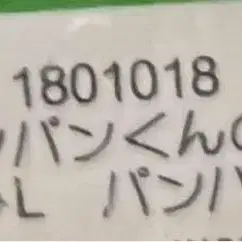 1801018
パンくん
L パン